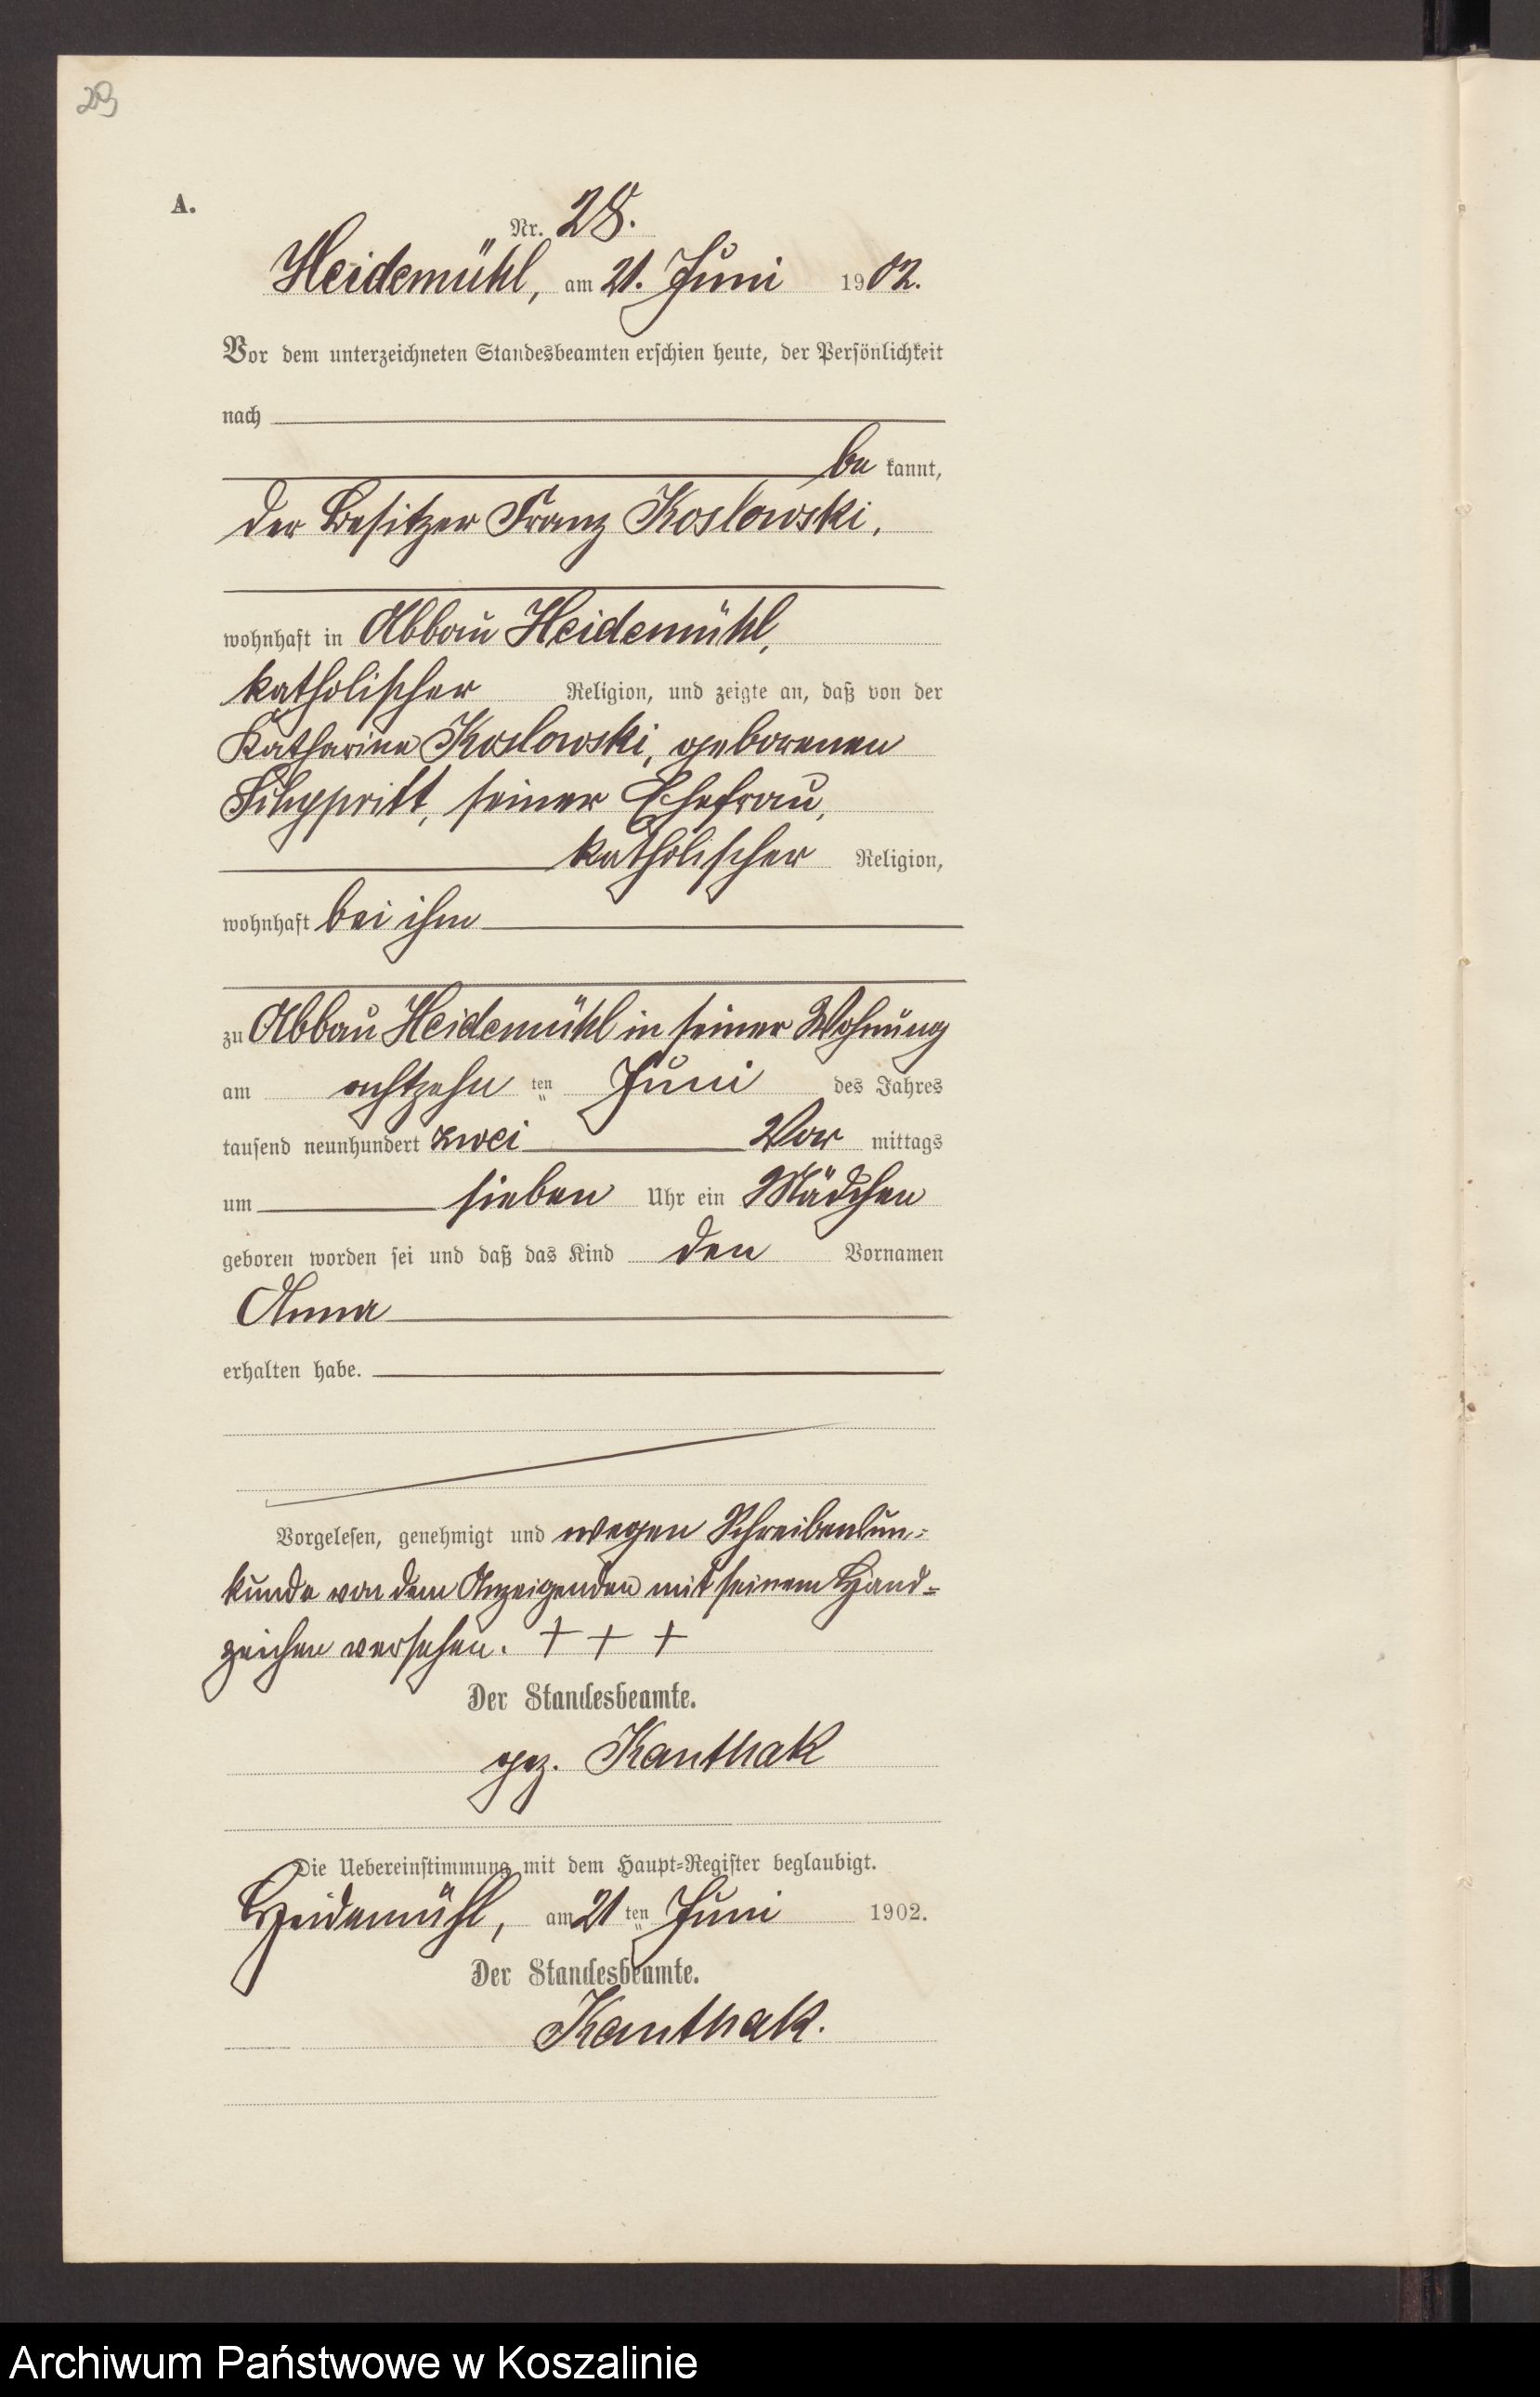 29
A.
Nr. 28.
Heidemühl, am 21. Juni 1902.
Vor dem unterzeichneten Standesbeamten erschien heute, der Persönlichkeit
nach
be kannt,
der Besitzer Franz Koslowski,
wohnhaft in Abbau Heidemühl,
katholischer Religion, und zeigte an, daß von der
Katharina Koslowski, geborenen
seiner Ehefrau,
katholischer Religion,
wohnhaft bei ihm
zu Abbau Heidemühl in seiner Wohnung
am achtzehn ten Juni des Jahres
tausend neunhundert zwei Vor mittags
um sieben Uhr ein Mädchen
geboren worden sei und daß das Kind den Vornamen
Anna
erhalten habe.
Vorgelesen, genehmigt und wegen Schreibensun-
kunde von dem Anzeigenden mit seinem Hand-
zeichen versehen. + + +
Der Standesbeamte.
gez. Kanthak
Die Uebereinstimmung mit dem Haupt-Register beglaubigt.
Heidemühl, am 21 ten Juni 1902.
Der Standesbeamte.
Kanthak.
Archiwum Państwowe w Koszalinie